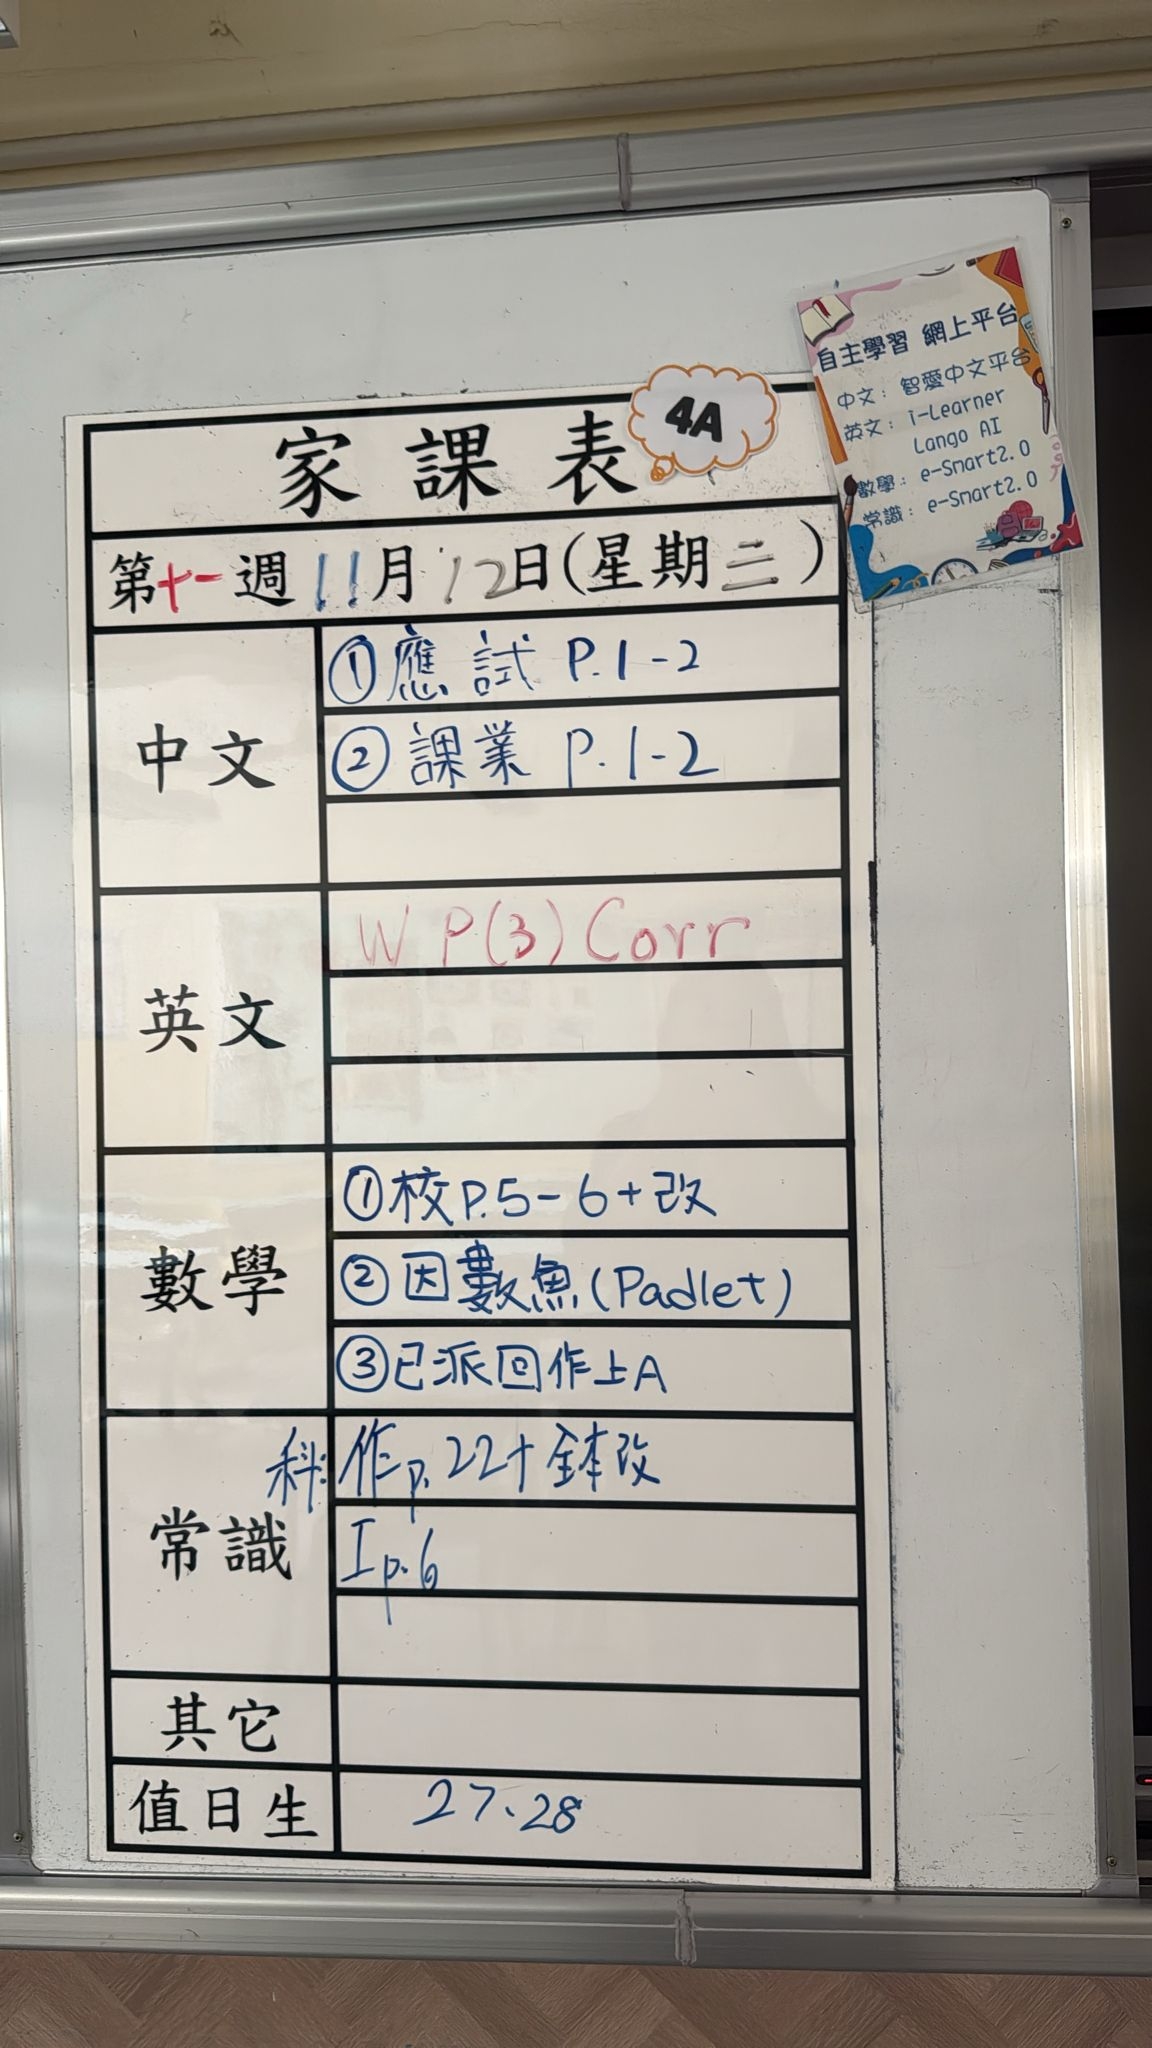 自主學習 網上平台
中文：智愛中文平台
英文：i-Learner
Lango AI
數學：e-Smart2.0
常識：e-Smart2.0
4A
家課表
第十一週 11月12日(星期三)
中文
①應試 P.1-2
②課業 P.1-2
英文
W P(3) Corr
數學
①校P.5-6+改
②因數魚(Padlet)
③已派回作上A
常識
科: 作p.22+銇改
I p.6
其它
值日生
27、28